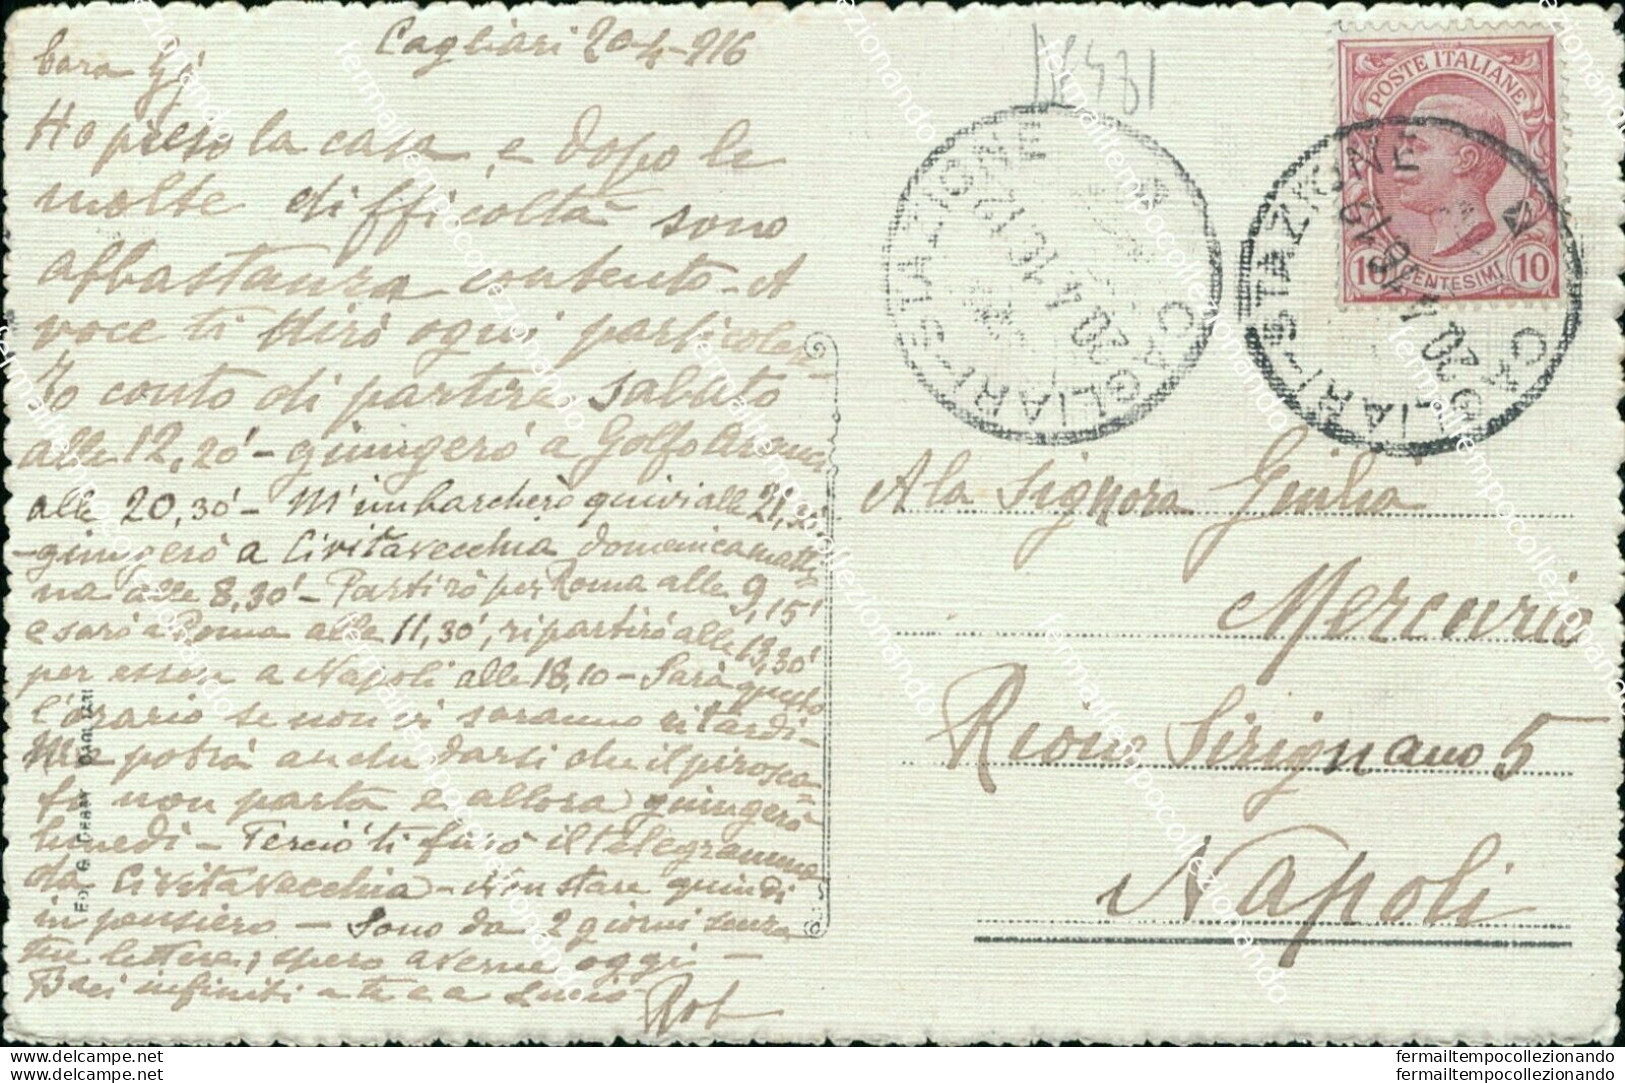 Cagliari 20-4-916
Cara Gì
Ho preso la casa e dopo le
molte difficoltà sono
abbastanza contento - A
voce ti dirò ogni particolare
Io conto di partire sabato
alle 12,20' - giungerò a Golfo Aranci
alle 20,30' - M'imbarcherò quivi alle
- giungerò a Civitavecchia domenica matti
na alle 8,30' - Partirò per Roma alle 9,15'
e sarò a Roma alle 11,30', ripartirò alle 13,30'
per essere a Napoli alle 18,10 - Sarà questo
l'orario se non vi saranno ritardi -
Ma potrà anche darsi che il pirosca=
fo non parta e allora giungerò
lunedì - Perciò ti farò il telegramma
da Civitavecchia - Non stare quindi
in pensiero - Sono da 2 giorni senza
tue lettere; spero averne oggi -
Baci infiniti a te e a Lucio
Rob
POSTE ITALIANE
10 CENTESIMI 10
CAGLIARI-STAZIONE
20.4.16.12
CAGLIARI-STAZIONE
20.4.16.12
A la Signora Giulia
Mercurio
Rione Sirignano 5
Napoli
fermailtempocollezionando
fermailtempocollezionando
fermailtempocollezionando
fermailtempocollezionando